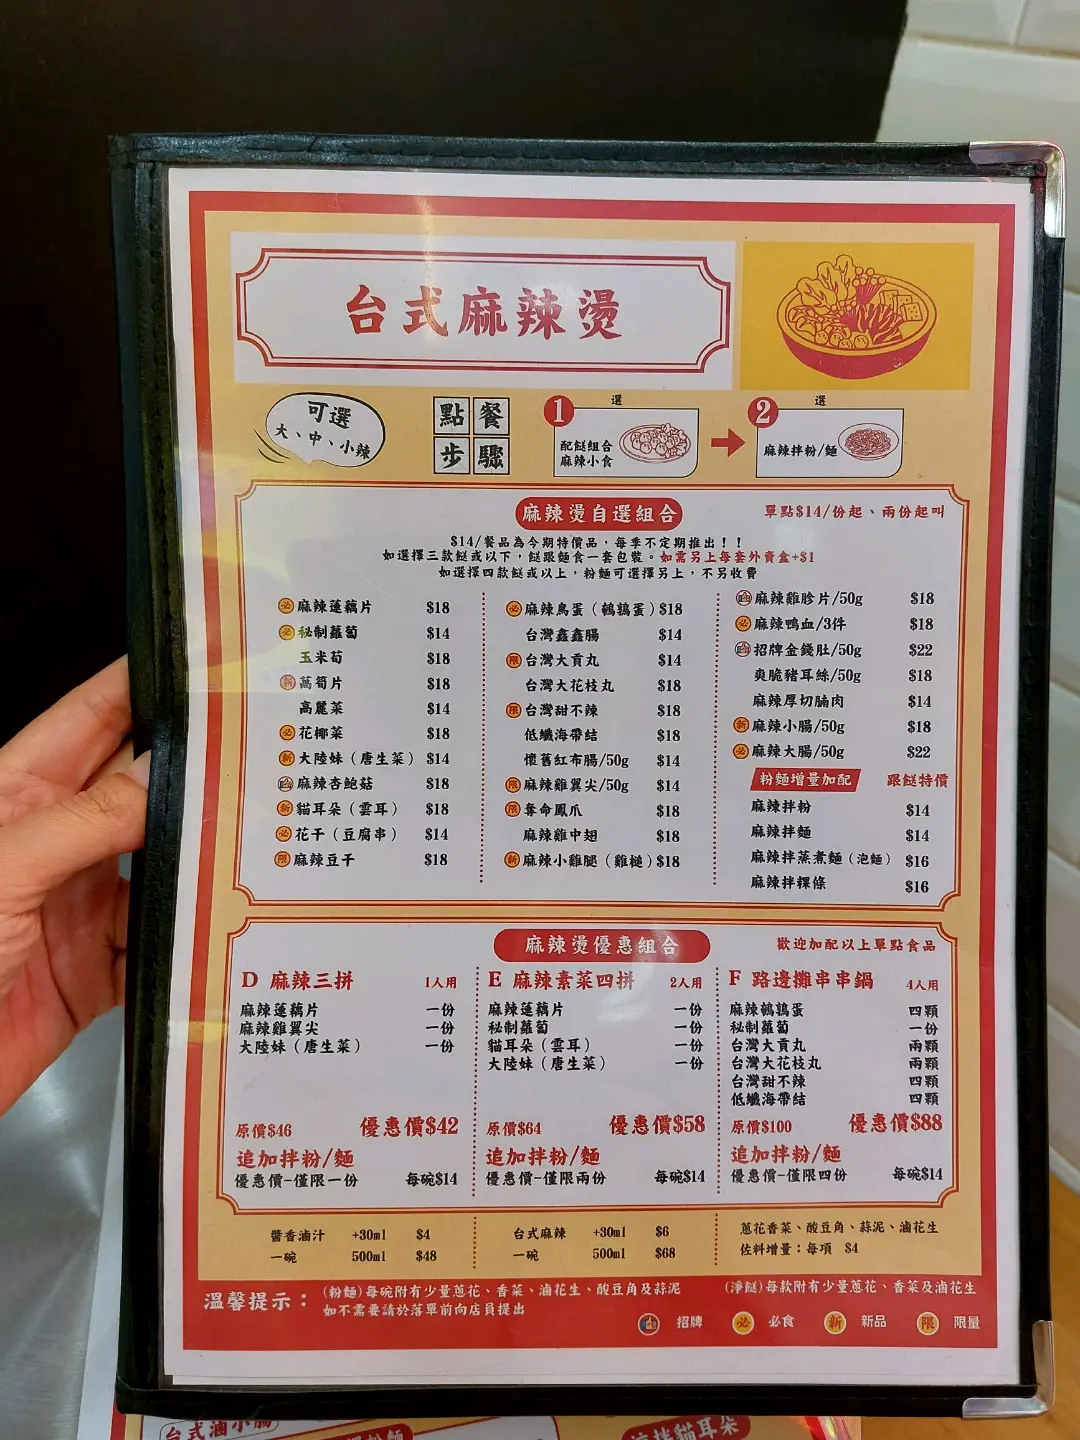 台式麻辣燙
可選
大、中、小辣
點餐
步驟
1
選
配餸組合
麻辣小食
2
選
麻辣拌粉/麵
麻辣燙自選組合
單點$14/份起、兩份起叫
$14/餐品為今期特價品,每季不定期推出!!
如選擇三款餸或以下,餸跟麵食一套包裝。如需另上每套外賣盒+$1
如選擇四款餸或以上,粉麵可選擇另上,不另收費
必 麻辣蓮藕片 $18
必 秘制蘿蔔 $14
玉米荀 $18
新 萵筍片 $18
高麗菜 $14
必 花椰菜 $18
新 大陸妹(唐生菜) $14
麻辣杏鮑菇 $18
新 貓耳朵(雲耳) $18
必 花干(豆腐串) $14
限 麻辣豆干 $18
必 麻辣鳥蛋(鵪鶉蛋) $18
台灣鑫鑫腸 $14
限 台灣大貢丸 $14
台灣大花枝丸 $18
限 台灣甜不辣 $18
低孅海帶結 $18
懷舊紅布腸/50g $14
限 麻辣雞翼尖/50g $14
限 奪命鳳爪 $18
麻辣雞中翅 $18
新 麻辣小雞腿(雞槌) $18
麻辣雞胗片/50g $18
必 麻辣鴨血/3件 $18
招牌金錢肚/50g $22
爽脆豬耳絲/50g $18
麻辣厚切腩肉 $14
新 麻辣小腸/50g $18
必 麻辣大腸/50g $22
粉麵增量加配 跟餸特價
麻辣拌粉 $14
麻辣拌麵 $14
麻辣拌蒸煮麵(泡麵) $16
麻辣拌粿條 $16
麻辣燙優惠組合
歡迎加配以上單點食品
D 麻辣三拼 1人用
麻辣蓮藕片 一份
麻辣雞翼尖 一份
大陸妹(唐生菜) 一份
原價$46 優惠價$42
追加拌粉/麵
優惠價-僅限一份 每碗$14
E 麻辣素菜四拼 2人用
麻辣蓮藕片 一份
秘制蘿蔔 一份
貓耳朵(雲耳) 一份
大陸妹(唐生菜) 一份
原價$64 優惠價$58
追加拌粉/麵
優惠價-僅限兩份 每碗$14
F 路邊攤串串鍋 4人用
麻辣鵪鶉蛋 四顆
秘制蘿蔔 一份
台灣大貢丸 兩顆
台灣大花枝丸 兩顆
台灣甜不辣 四顆
低孅海帶結 四顆
原價$100 優惠價$88
追加拌粉/麵
優惠價-僅限四份 每碗$14
醬香滷汁 +30ml $4
一碗 500ml $48
台式麻辣 +30ml $6
一碗 500ml $68
蔥花香菜、酸豆角、蒜泥、滷花生
佐料增量:每項 $4
溫馨提示:
(粉麵)每碗附有少量蔥花、香菜、滷花生、酸豆角及蒜泥
如不需要請於落單前向店員提出
(淨餸)每款附有少量蔥花、香菜及滷花生
招牌 必 必食 新 新品 限 限量
台式滷小腸
涼拌貓耳朵